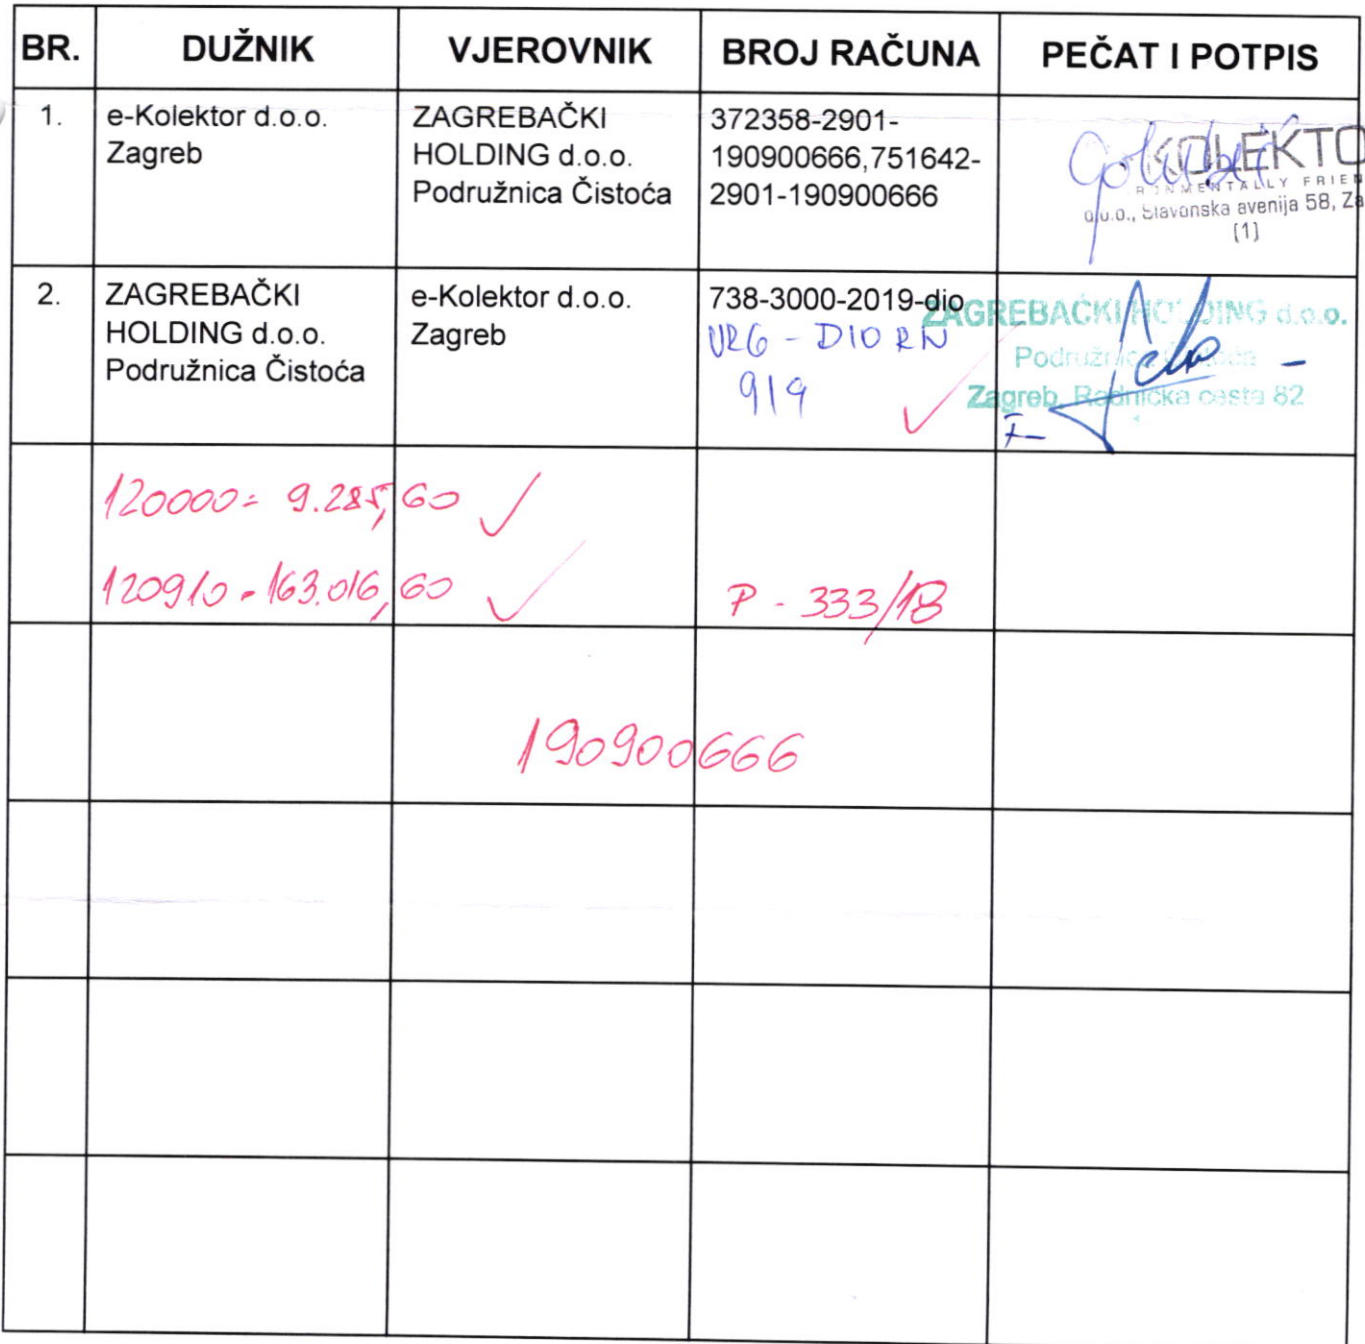 BR. DUŽNIK VJEROVNIK BROJ RAČUNA PEČAT I POTPIS
1.
e-Kolektor d.o.o.
Zagreb
ZAGREBAČKI
HOLDING d.o.o.
Podružnica Čistoća
372358-2901-
190900666,751642-
2901-190900666
KOLEKTO
RONMENTALLY FRIEN
d.o.o., Slavonska avenija 58, Za
(1)
2.
ZAGREBAČKI
HOLDING d.o.o.
Podružnica Čistoća
e-Kolektor d.o.o.
Zagreb
738-3000-2019-dio
URG - DIO RN
919
ZAGREBAČKI HOLDING d.o.o.
Podružnica Čistoća
Zagreb, Radnička cesta 82
120000= 9.285,60
120910 - 163.016,60
P - 333/18
190900666